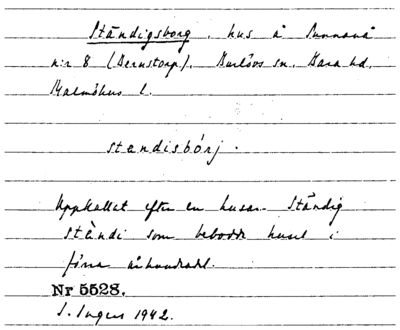 Ståndigsborg, hus å Sunnanå
n:r 8 (Bernstorp), Burlövs sn, Bara hd,
Malmöhus l.
standisbórj.
Uppkallat efter en husar Ståndig
ståndi som bebodde huset i
förra århundradet.
Nr 5528.
S. Ingers 1942.